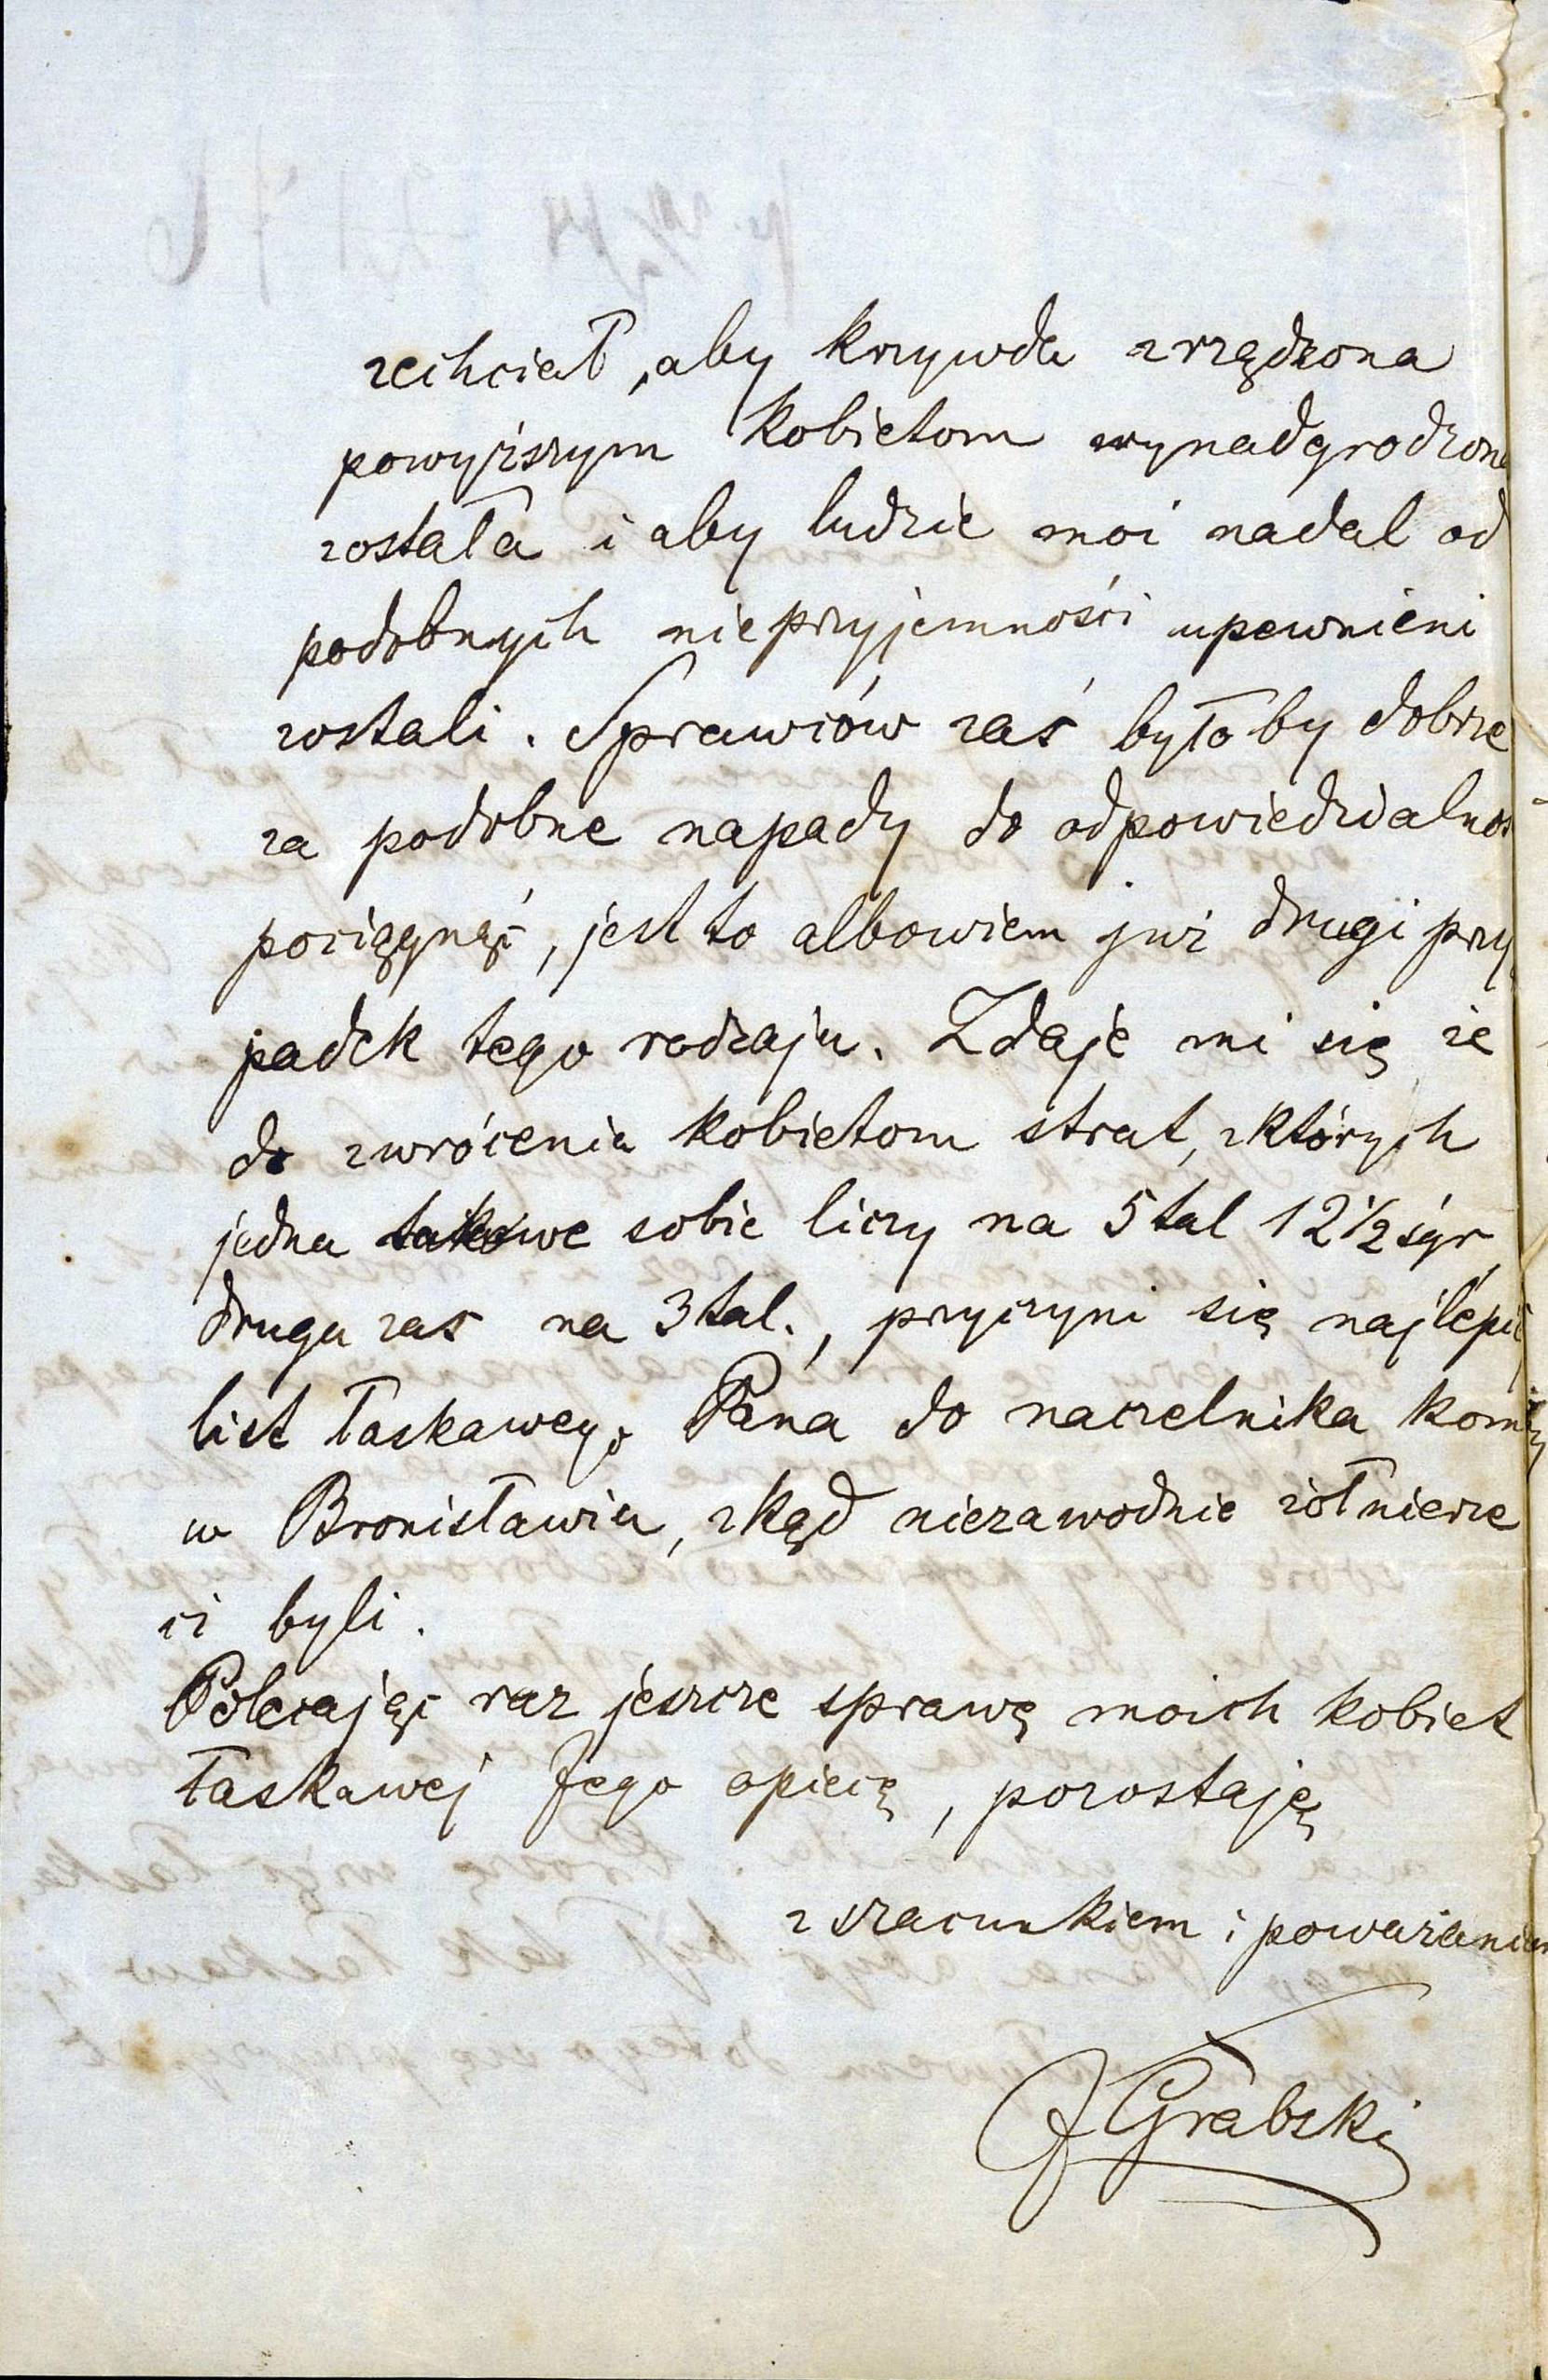 zechciał, aby krzywda zrządzona
powyższym kobietom wynadgrodzona
została i aby ludzie moi nadal od
podobnych nieprzyjemności upewnieni
zostali. Sprawców zaś byłoby dobrze
za podobne napady do odpowiedzialnoś
pociągnąć, jest to albowiem już drugi przy
padek tego rodzaju. Zdaje mi się że
do zwrócenia kobietom strat, z których
jedna takowe sobie liczy na 5 tal 12 1/2 sgr,
druga zaś na 3 tal., przyczyni się najlepiej
list łaskawego Pana do naczelnika
w Bronisławiu, zkąd niezawodnie żołnierze
ci byli.
Polecając raz jeszcze sprawę moich kobiet
łaskawej Jego opiece, pozostaję
z szacunkiem i poważaniem
Grabski